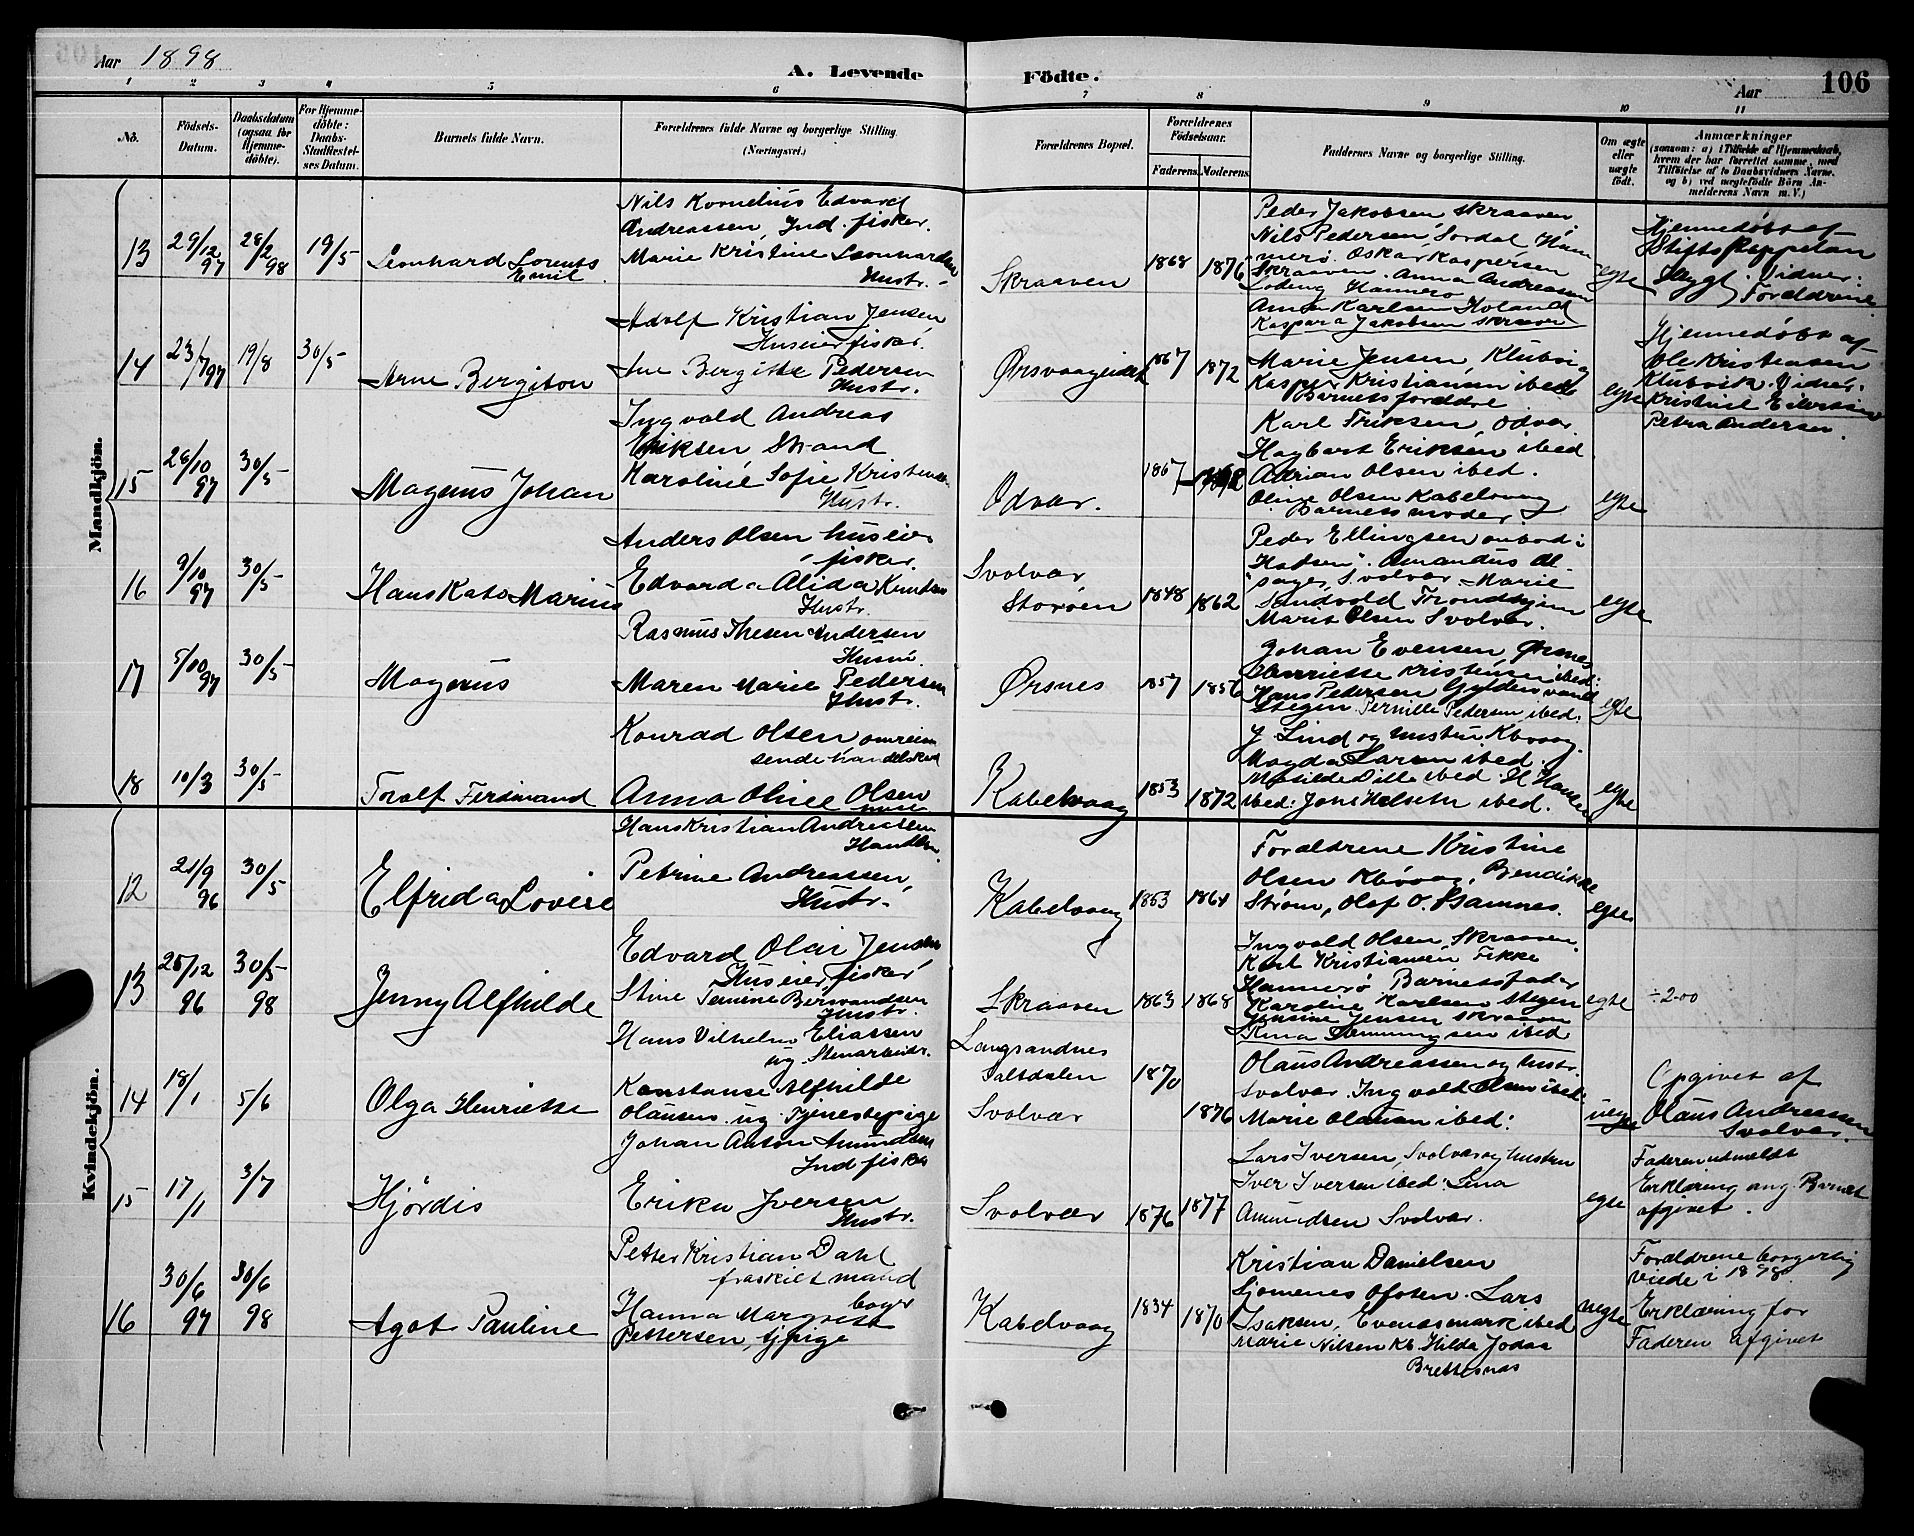 Aar 1898
A. Levende Födte.
Aar 106
1 2 3 4 5 6 7 8 9 10 11
No.
Födsels-Datum.
Daabsdatum (ogsaa for Hjemmedöbte).
For Hjemmedöbte: Daabs-Stadfæstelses Datum.
Barnets fulde Navn.
Forældrenes fulde Navne og borgerlige Stilling. (Næringsvei.)
Forældrenes Bopæl.
Forældrenes Födselsaar.
Faderens. Moderens.
Faddernes Navne og borgerlige Stilling.
Om ægte eller uægte födt.
Anmærkninger
(saasom: a) i Tilfælde af Hjemmedaab, hvem der har forrettet samme, med Tilföielse af to Daabsvidners Navne. og b) ved uægtefödte Börn Anmelderens Navn m. V.)
Mandkjön.
13 29/12 97 28/2 98 19/5 Leonhard Lorents Emil
Nils Kornelius Edvard
Andreassen, Ind. fisker.
Marie Kristine Leonhardsen
Hustr.
Skraaven 1868 1876
Peder Jakobsen, Skraaven
Nils Pedersen, Sordal, Ham
merø. Oskar Kaspersen
Skraaven. Anna Andreassen
Anna Karlsen Holand
Kaspara Jakobsen Skraaven
egte
Hjemmedøbt af
Stiftskappelan
Vidner:
Forældrene
14 23/7 97 19/8 30/5 Arne Bergiton
Adolf Kristian Jensen
Huseier fisker.
Ane Bergitte Pedersen
Hustr.
Ørsvaageidet 1867 1872
Marie Jensen, Klubvig
Kasper Kristiansen ibed
Barnets forældre
egte
Hjemmedøbt af
Ole Kristensen
Klubvik. Vidner:
Kristine Eilertsen
Petra Andersen.
15 28/10 97 30/5 Magnus Johan
Ingvald Andreas
Eriksen Strand
Karoline Sofie Kristensen
Hustr.
Odvær. 1867
Karl Eriksen, Odvær
Hagbart Eriksen ibed
Adrian Olsen ibed.
Oline Olsen Kabelvaag
Barnets moder.
egte
16 9/10 97 30/5 Hans Kato Marius
Anders Olsen huseier
fisker.
Edvarda Alida Knudsen
Hustr.
Svolvær
Storøen 1848 1862
Peder Ellingsen ombord i
Amandus Al-
Svolvær Marie
Sandvold Trondhjem
Marit Olsen Svolvær.
egte
17 5/10 97 30/5 Magnus
Rasmus Thesen Andersen
Maren Marie Pedersen
Hustr.
Ørsnes 1857 1856
Johan Evensen Ørsnes
Henriette Kristensen ibed:
Hans Pedersen Gyldenvand
Stegen Pernille Pedersen ibed.
egte
18 10/3 30/5 Toralf Ferdinand
Konrad Olsen omrei
sende handelskar
Anna Oline Olsen
Kabelvaag 1853 1872
J Lind og hustru Kbvaag.
Magda Larsen ibed.
Matilde Ditte ibed H Hansen
ibed: John Helseth ibed.
egte
Kvindekjön.
12 21/9 96 30/5 Elfrida Lovise
Hans Kristian Andreassen
Handlm
Petrine Andreassen,
Hustr.
Kabelvaag 1853 1864
Forældrene Kristine
Olsen Kbvaag, Bendikke
Strøm, Olaf O.
egte
13 25/12 96 30/5 98 Jenny Alfhilde
Edvard Olai Jensen
Huseier, fisker,
Stine Bernandsen
Hustr.
Skraaven 1863 1868
Ingvald Olsen, Skraaven.
Karl Kristiansen Fikke
Hammerø Barnets fader
Karoline Karlsen Stegen
Jensine Jensen Skraaven
ibed
egte ÷ 2-00
14 18/1 5/6 Olga Henriette
Hans Vilhelm Eliassen
ug Stenarbeidr.
Konstanse Alfhilde
Olausens ug. Tjenestepige
Langsandnes
Saltdalen 1870
Svolvær 1876
Olaus Andreassen og hustr.
Svolvær Ingvald Olsen ibed:
Marie Olausen ibed:
uegte
Opgivet af
Olaus Andreassen
Svolvær.
15 17/1 3/7 Hjørdis
Johan Anton Amundsen
Ind fisker
Erika Iversen
Hustr.
Svolvær 1876 1877
Lars Iversen, Svolvær og hustru
Iver Iversen ibed: Lina
Amundsen Svolvær.
egte
Faderen udmeldt
Erklæring ang. Barnet
afgivet.
16 30/6 97 30/6 98 Agot Pauline
Petter Kristian Dahl
fraskilt mand
bager
Hanna Margrett
Pettersen,
Kabelvaag 1834 1870
Kristian Danielsen
Ofoten. Lars
Isaksen, Evenesmark ibed
Marie Nilsen Kb Hilda
Brettesnes
uegte
Forældrene borgerlig
viede i 1898
Erklæring for
Faderen afgivet